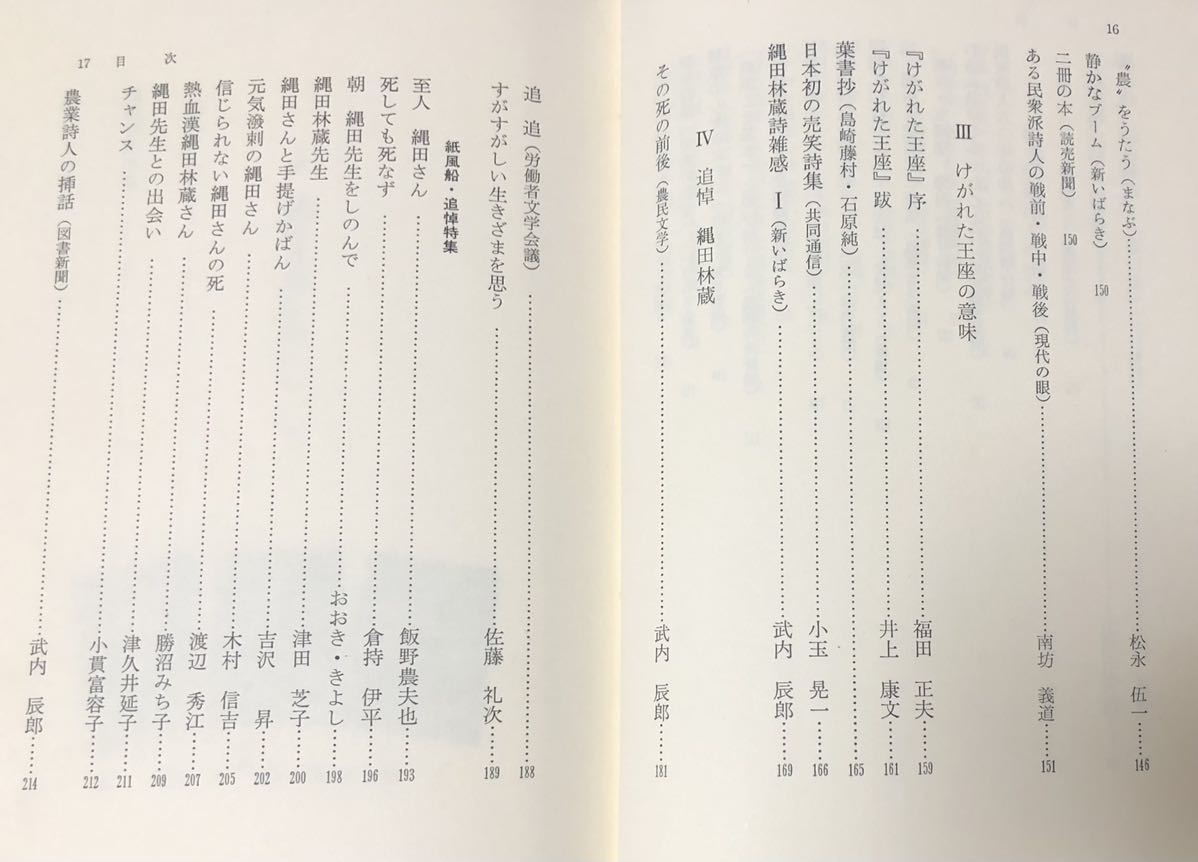 16
〝農〟をうたう（まなぶ）……松永 伍一……146
静かなブーム（新いばらき） 150
二冊の本（読売新聞） 150
ある民衆派詩人の戦前・戦中・戦後（現代の眼）……南坊 義道……151
Ⅲ けがれた王座の意味
『けがれた王座』序……福田 正夫……159
『けがれた王座』跋……井上 康文……161
葉書抄（島崎藤村・石原純）……165
日本初の売笑詩集（共同通信）……小玉 晃一……166
縄田林蔵詩雑感 Ⅰ（新いばらき）……武内 辰郎……169
Ⅳ 追悼 縄田林蔵
その死の前後（農民文学）……武内 辰郎……181
追 追（労働者文学会議）……188
すがすがしい生きざまを思う……佐藤 礼次……189
紙風船・追悼特集
至人 縄田さん……飯野農夫也……193
死しても死なず……倉持 伊平……196
朝 縄田先生をしのんで……おおき・きよし……198
縄田林蔵先生……津田 芝子……200
縄田さんと手提げかばん……吉沢 昇……202
元気潑刺の縄田さん……木村 信吉……205
信じられない縄田さんの死……渡辺 秀江……207
熱血漢縄田林蔵さん……勝沼みち子……209
縄田先生との出会い……津久井延子……211
チャンス……小貫富容子……212
農業詩人の挿話（図書新聞）……武内 辰郎……214
17 目 次